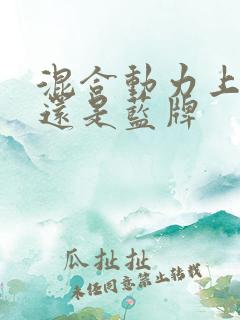 混合動力上
還是藍牌
瓜扯扯
未经同意禁止转载